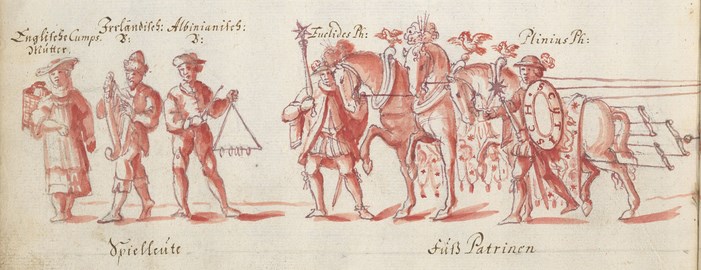 Englische Cumps.
Mütter.
Irrländisch:
P:
Albinianisch:
P:
Euclides Ph:
Plinius Ph:
SCUTUS
Spielleute
Füß Patrinen